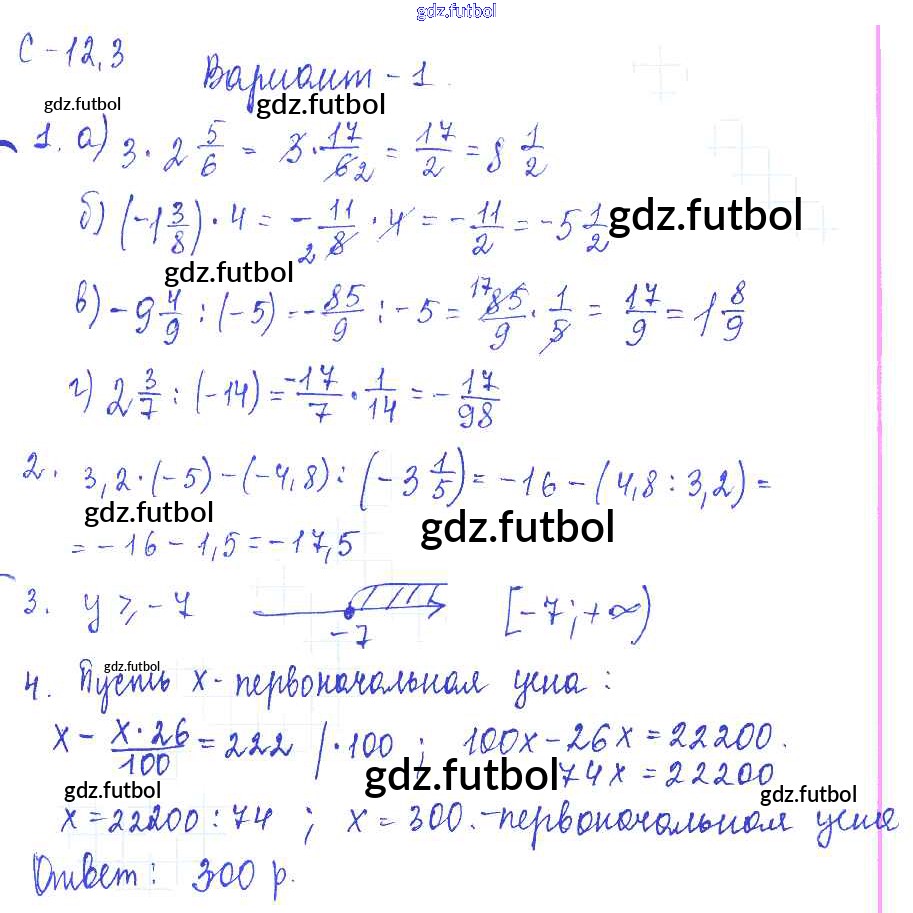 gdz.futbol
С-12,3
Вариант-1.
gdz.futbol gdz.futbol
1. а) 3 · 2 5/6 = 3 · 17/6 2 = 17/2 = 8 1/2
б) (-1 3/8) · 4 = - 11/8 2 · 4 = - 11/2 = -5 1/2 gdz.futbol
gdz.futbol
в) -9 4/9 : (-5) = - 85/9 : -5 = 17 85/9 · 1/5 = 17/9 = 1 8/9
г) 2 3/7 : (-14) = -17/7 · 1/14 = - 17/98
2. 3,2 · (-5) - (-4,8) : (-3 1/5) = -16 - (4,8 : 3,2) =
gdz.futbol gdz.futbol
= -16 - 1,5 = -17,5
3. у ⩾ -7 -7 [-7; +∞)
gdz.futbol
4. Пусть х - первоначальная цена:
х - х·26/100 = 222 | ·100 ; 100х - 26х = 22200.
gdz.futbol 74х = 22200
gdz.futbol gdz.futbol
х = 22200 : 74 ; х = 300. - первоначальная цена
Ответ: 300 р.